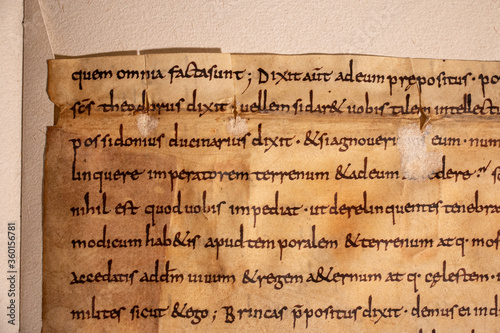 quem omnia factasunt; Dixit aūt adeum prępositus · po
sc̄s theodorus dixit · uellem sidar& uobis talem intellectu
possidonius ducinarius dixit · &siagnoueri eum · num
linquere imperatorem terrenum &adeum dere
nihil est quod uobis impediat · ut derelinquentes tenebra
modicum hab&is apud temporalem &terrenum atq · mos
accedatis addn̄m uiuum ®em a&ernum atq · cęlestem · i
milites sicut &ego; Brincas p̄positus dixit · demus ei ind
Adobe Stock | #360156781